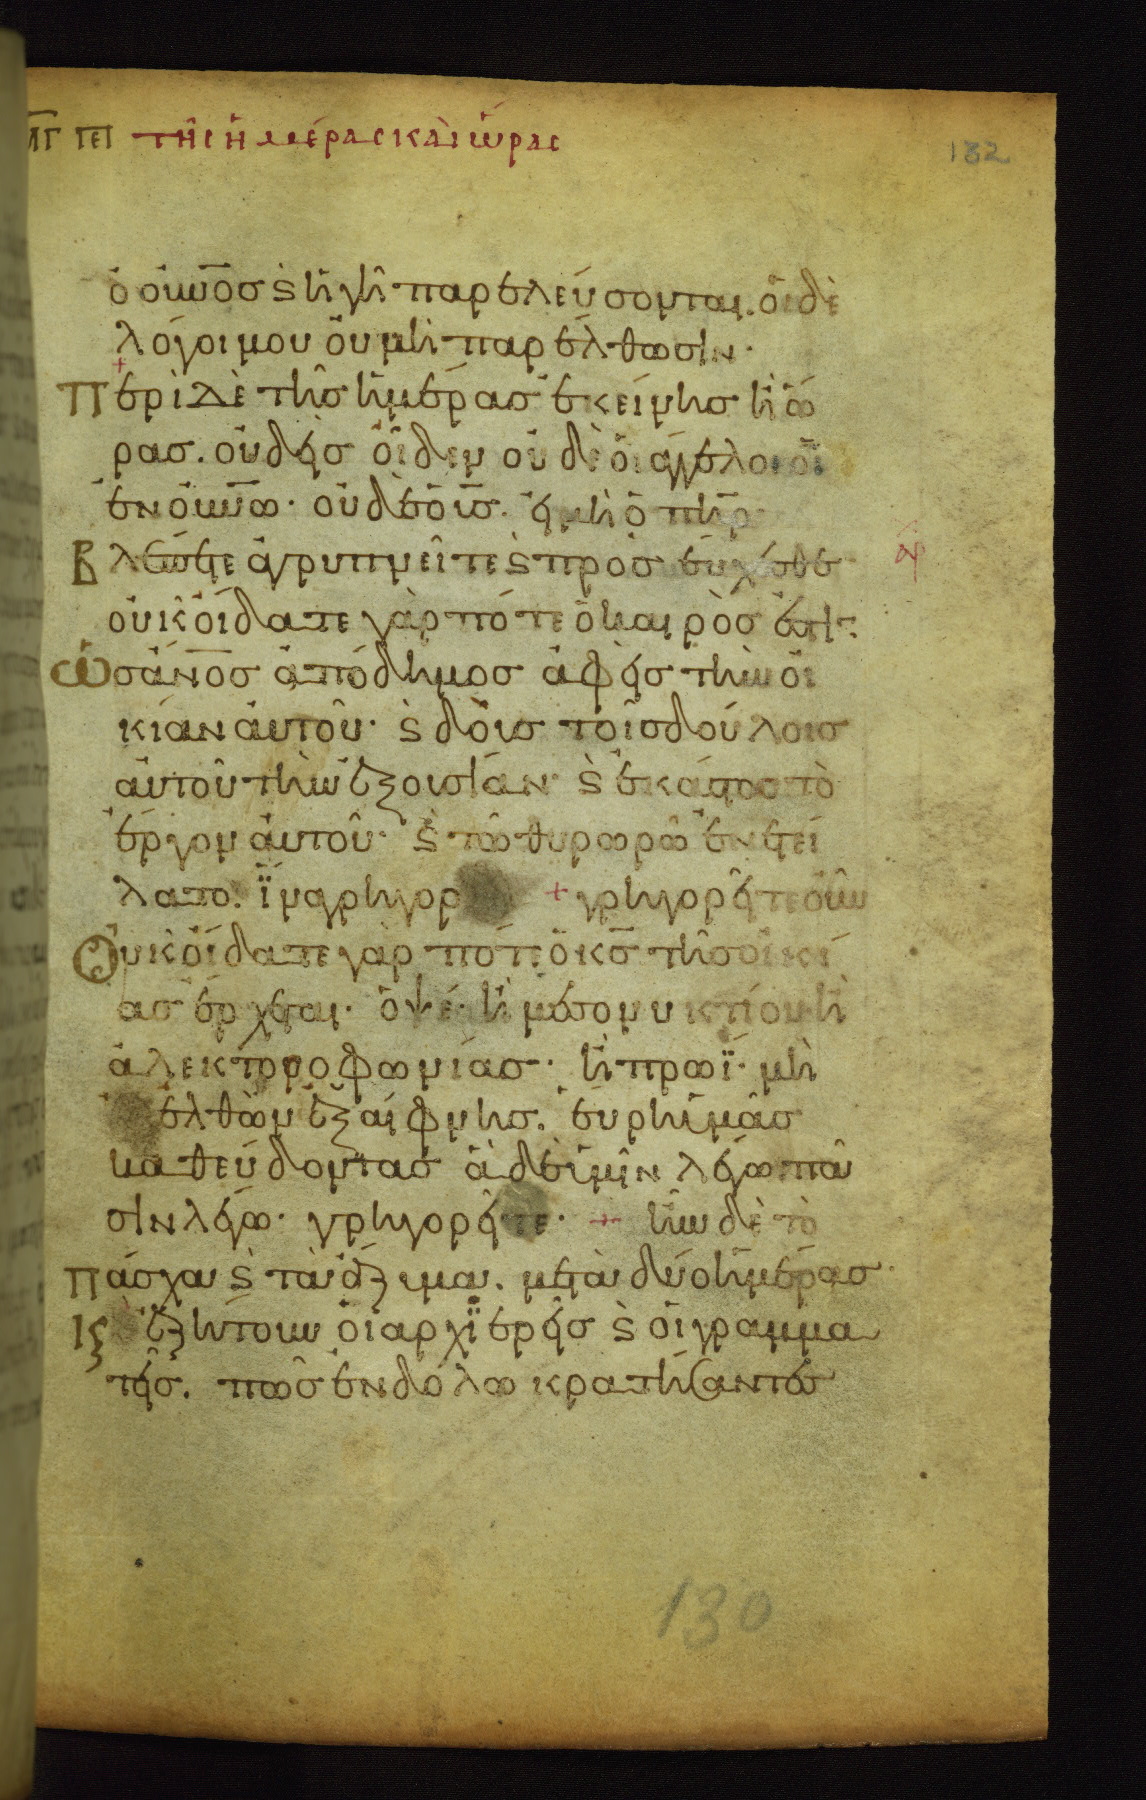 μγ περι τῆς ἡμέρας καὶ ὥρας
132
ὁ οὐνος ϗ ἡ γῆ παρελεύσονται. οἱ δὲ
λόγοι μου οὐ μὴ παρέλθωσιν·
περὶ δὲ τῆς ἡμέρας ἐκείνης ἢ ὥ
ρας. οὐδεὶς οἶδεν οὐδὲ οἱ ἄγγελοι οἱ
ἐν οὐνω· οὐδὲ ὁ υἱς. εἰ μὴ ὁ πηρ
βλέπετε ἀγρυπνεῖτε ϗ προσεύχεσθε
οὐκ οἴδατε γὰρ πότε ὁ καιρὸς ἐστι·
ὡς ἀνος ἀπόδημος ἀφεὶς τὴν οἰ
κίαν αὐτοῦ· ϗ δοὺς τοῖς δούλοις
αὐτοῦ τὴν ἐξουσίαν ϗ ἑκάστω τὸ
ἔργον αὐτοῦ· ϗ τῶ θυρωρῶ ἐνετεί
λατο. ἵνα γρηγορ + γρηγορεῖτε οὖν
οὐκ οἴδατε γὰρ πότε ὁ κς τῆς οἰκί
ας ἔρχεται· ὀψέ· ἢ μεσονυκτίου ἢ
ἀλεκτοροφωνίας· ἢ πρωΐ· μὴ
ἐλθὼν ἐξαίφνης. εὕρη ὑμᾶς
καθεύδοντας ἃ δὲ ὑμῖν λέγω πᾶ
σιν λέγω· γρηγορεῖτε· + ἦν δὲ τὸ
πάσχα ϗ τὰ ἄζυμα. μετὰ δύο ἡμέρας·
ἐζήτουν οἱ ἀρχϊερεῖς ϗ οἱ γραμμα
τεῖς. πῶς ἐν δόλω κρατήσαντες
130